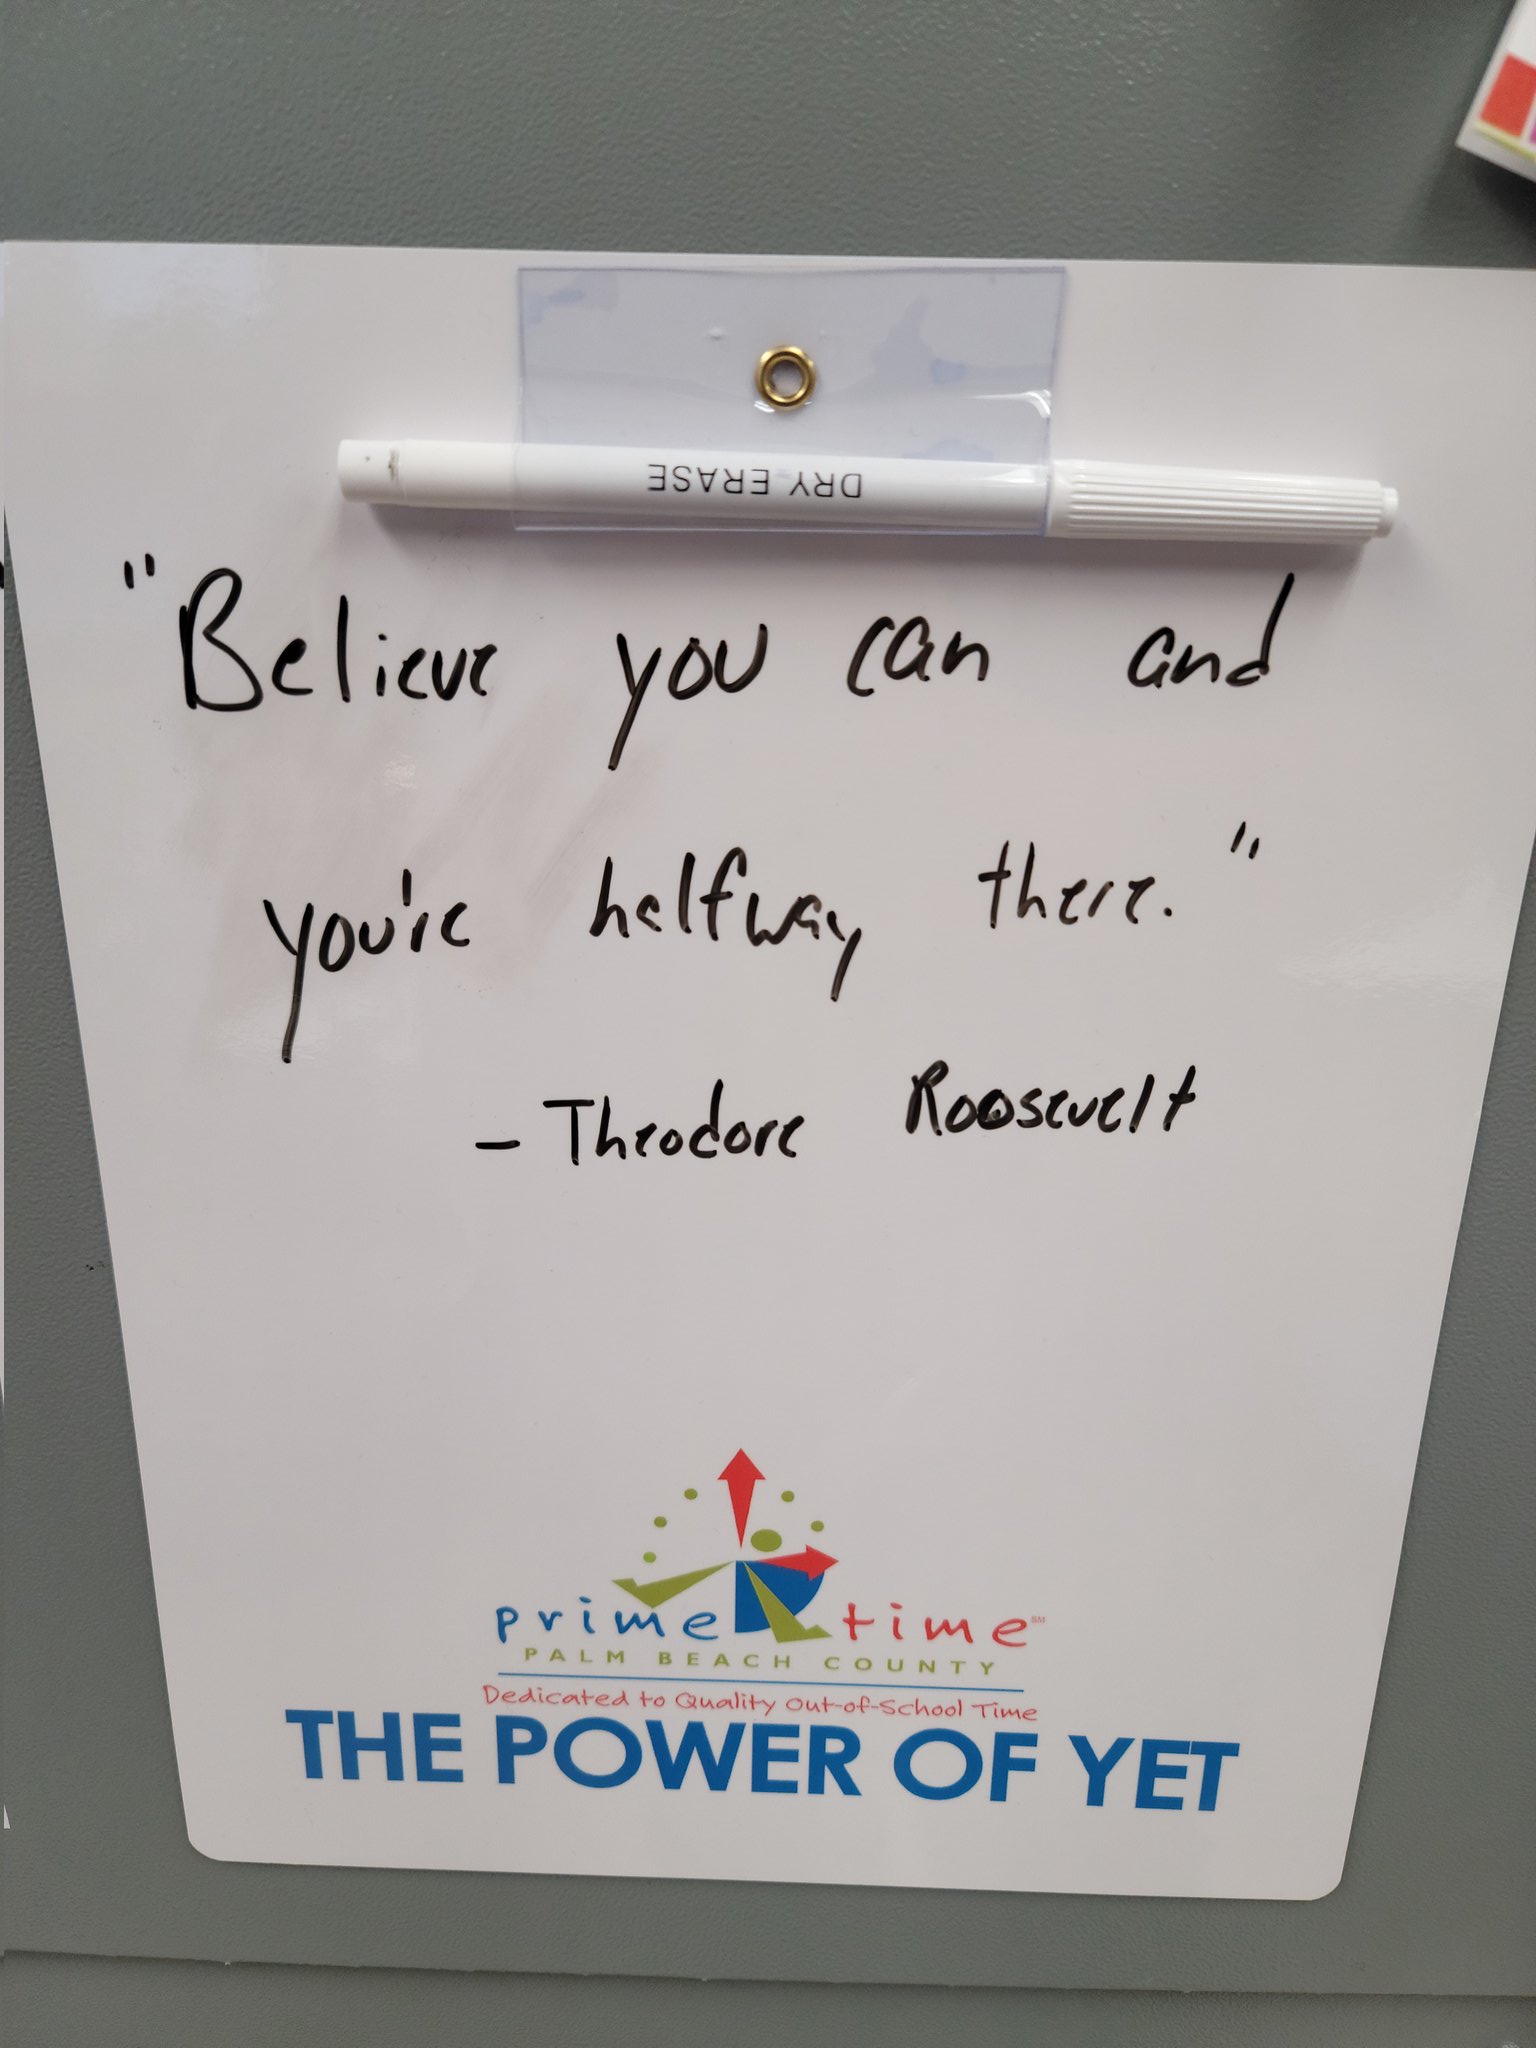 DRY ERASE
"Believe you can and
you're halfway there."
- Theodore Roosevelt
prime time SM
PALM BEACH COUNTY
Dedicated to Quality Out-of-School Time
THE POWER OF YET